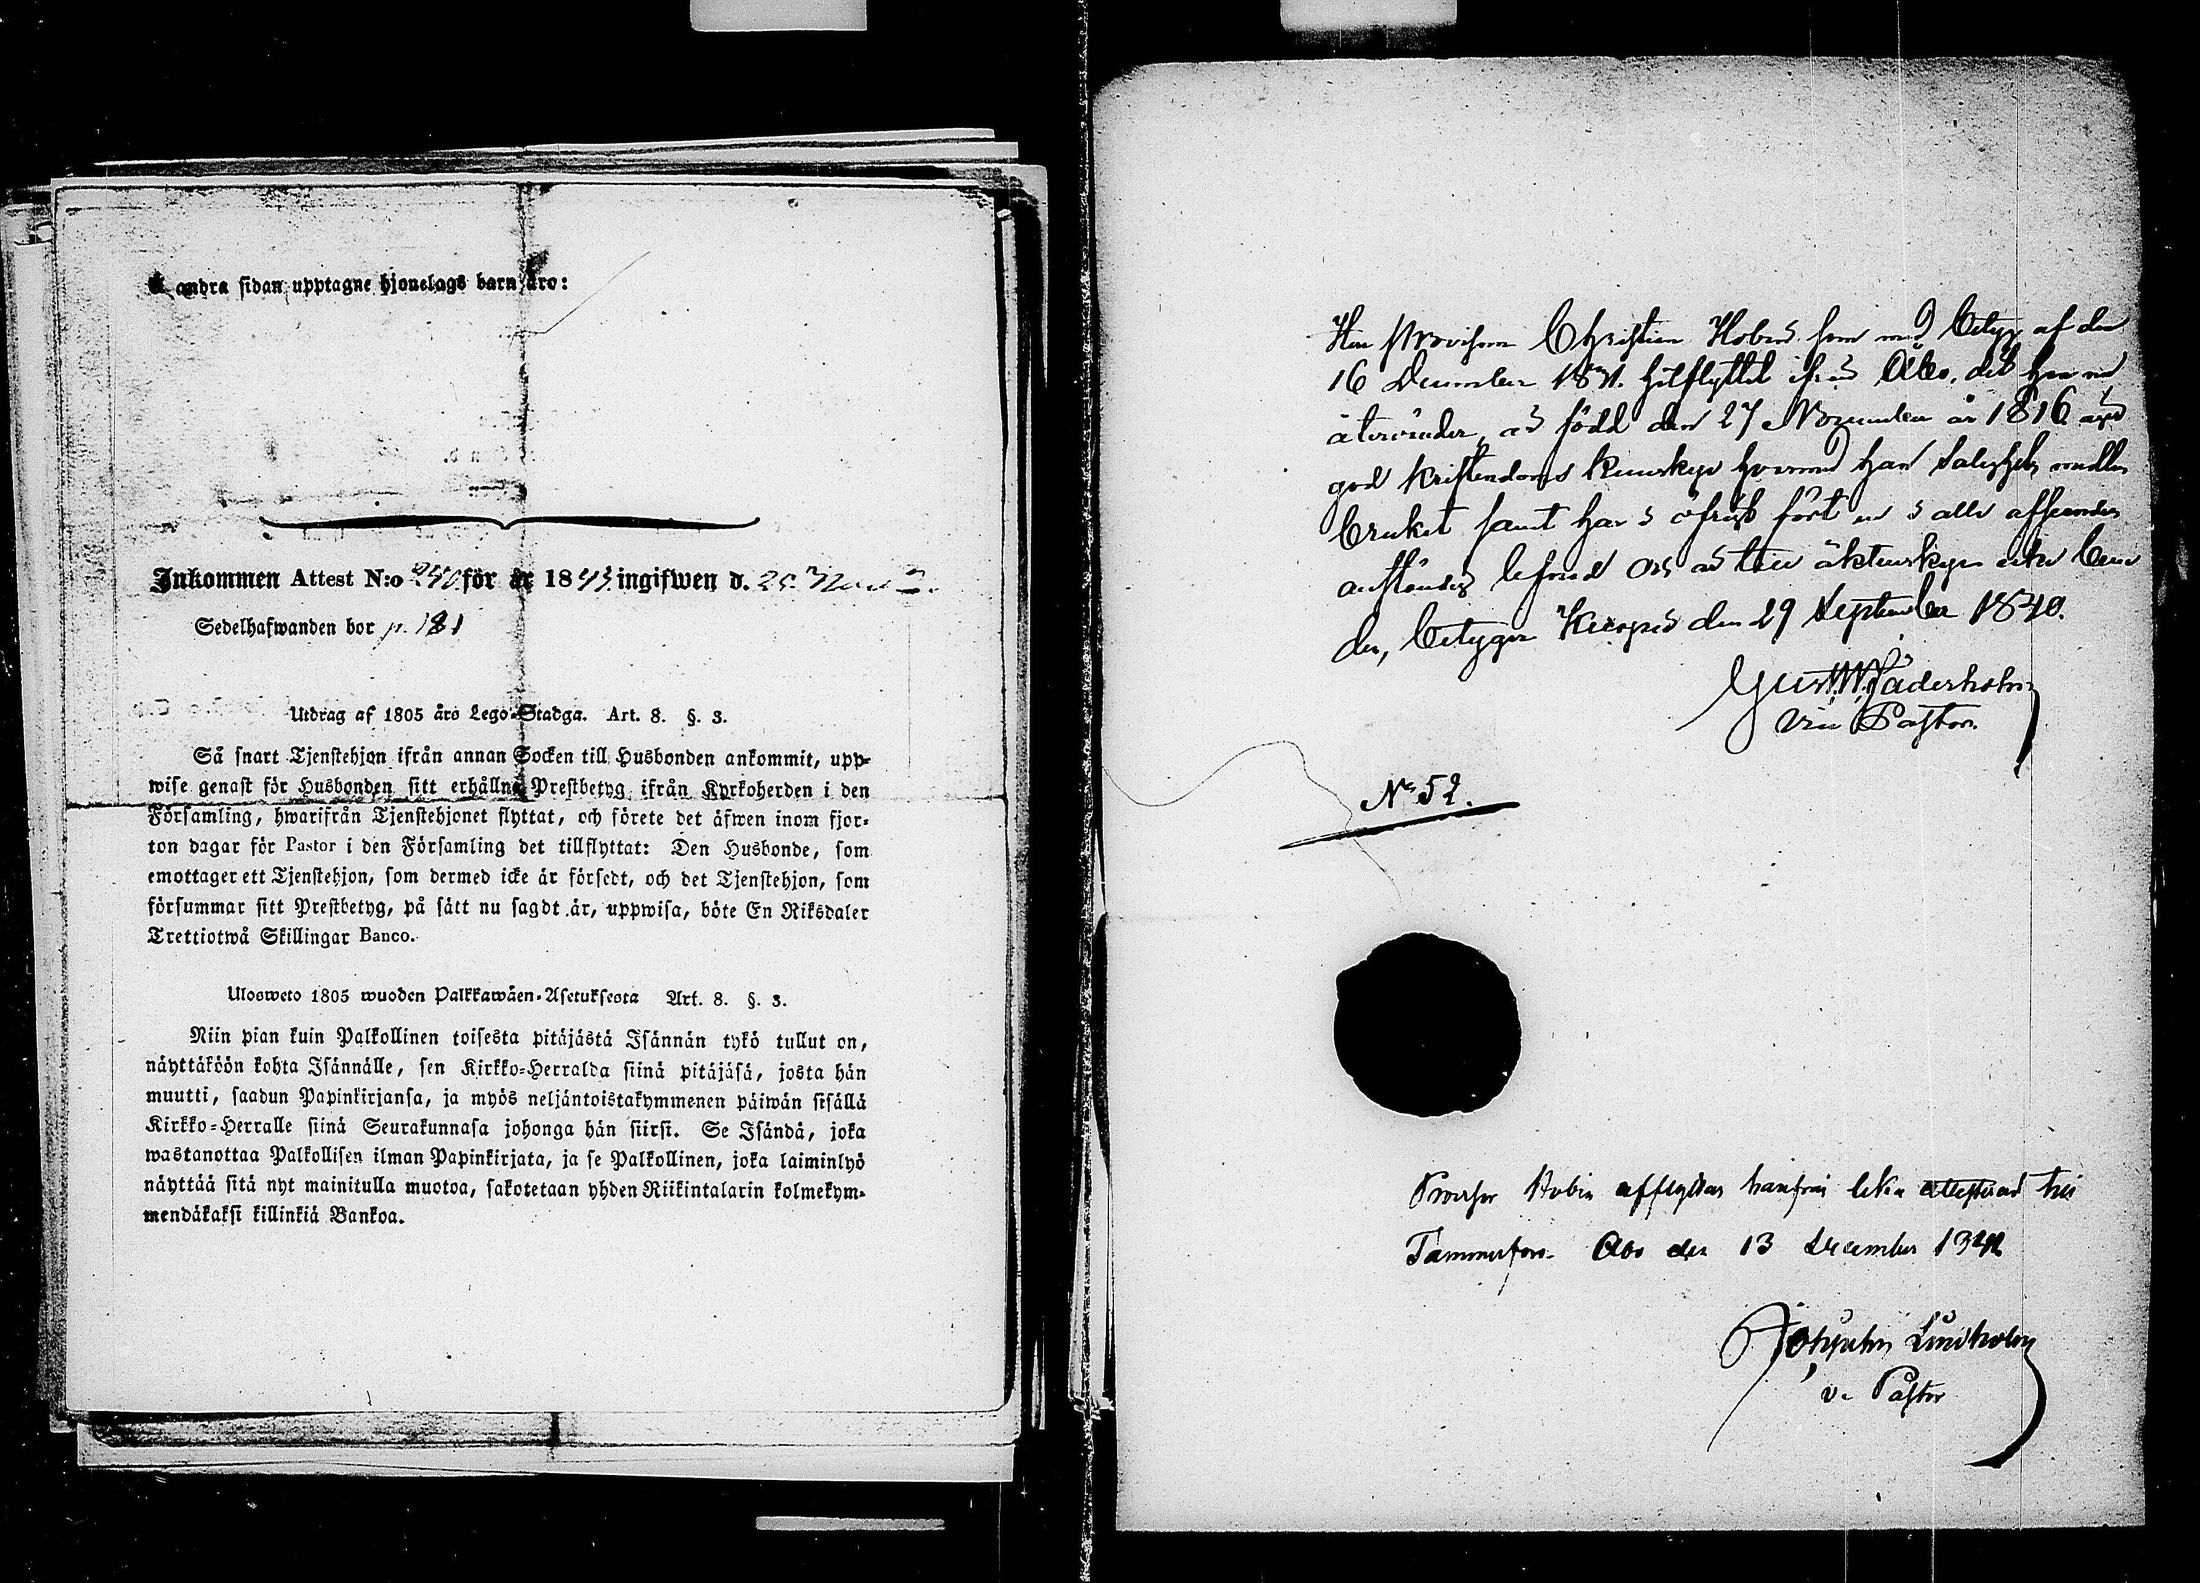 Å andra sidan upptagne hjonelags barn äro:
Inkommen Attest N:o 240 för år 1843 ingifwen d. 25
Sedelhafwanden bor p. 181
Utdrag af 1805 års Lego-Stadga. Art. 8. §. 3.
Så snart Tjenstehjon ifrån annan Socken till Husbonden ankommit, upp-
wise genast för Husbonden sitt erhållna Prestbetyg ifrån Kyrkoherden i den
Församling, hwarifrån Tjenstehjonet flyttat, och förete det äfwen inom fjor-
ton dagar för Pastor i den Församling det tillflyttat: Den Husbonde, som
emottager ett Tjenstehjon, som dermed icke är försedt, och det Tjenstehjon, som
försummar sitt Prestbetyg, på sätt nu sagdt är, uppwisa, böte En Riksdaler
Trettiotwå Skillingar Banco.
Ulosweto 1805 wuoden Palkkawäen-Asetuksesta Art. 8. §. 3.
Niin pian kuin Palkollinen toisesta pitäjästä Isännän tykö tullut on,
näyttäköön kohta Isännälle, sen Kirkko-Herralda siinä pitäjäsä, josta hän
muutti, saadun Papinkirjansa, ja myös neljäntoistakymmenen päiwän sisällä
Kirkko-Herralle siinä Seurakunnasa johonga hän siirsi. Se Isändä, joka
wastanottaa Palkollisen ilman Papinkirjata, ja se Palkollinen, joka laiminlyö
näyttää sitä nyt mainitulla muotoa, sakotetaan yhden Riikintalarin kolmekym-
mendäkaksi killinkiä Bankoa.
Herr Provisorn Christian Hobin som med betyg af den
16 December tilflyttat ifrån Åbo, dit han nu
återvänder, är född den 27 November år 1816, äger
god kristendoms kunskap hvarmed han salighets medlen
brukat samt har i öfrigt fört en i allo
anständig lefnad och är till äktenskap
der, betygar Kuopio den 29 September 1840.
Gust. W. Fäderholm
Vice Pastor.
No 52.
Provisor Hobin afflyttar härifrån lika attesterad till
Tammerfors. Åbo den 13 December
Lindholm
v. Pastor